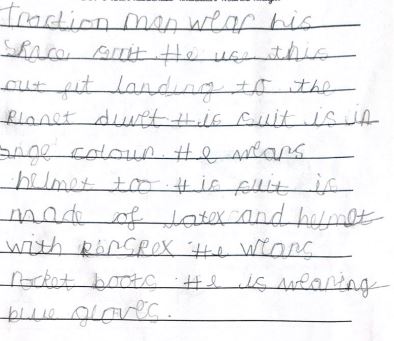 traction man wear his
Space suit. He use this
out fit landing to the
Planet duvet His suit is in
ange colour. He wears
helmet too His suit is
made of latex and helmet
with He wears
rocket boots. He is wearing
blue gloves.